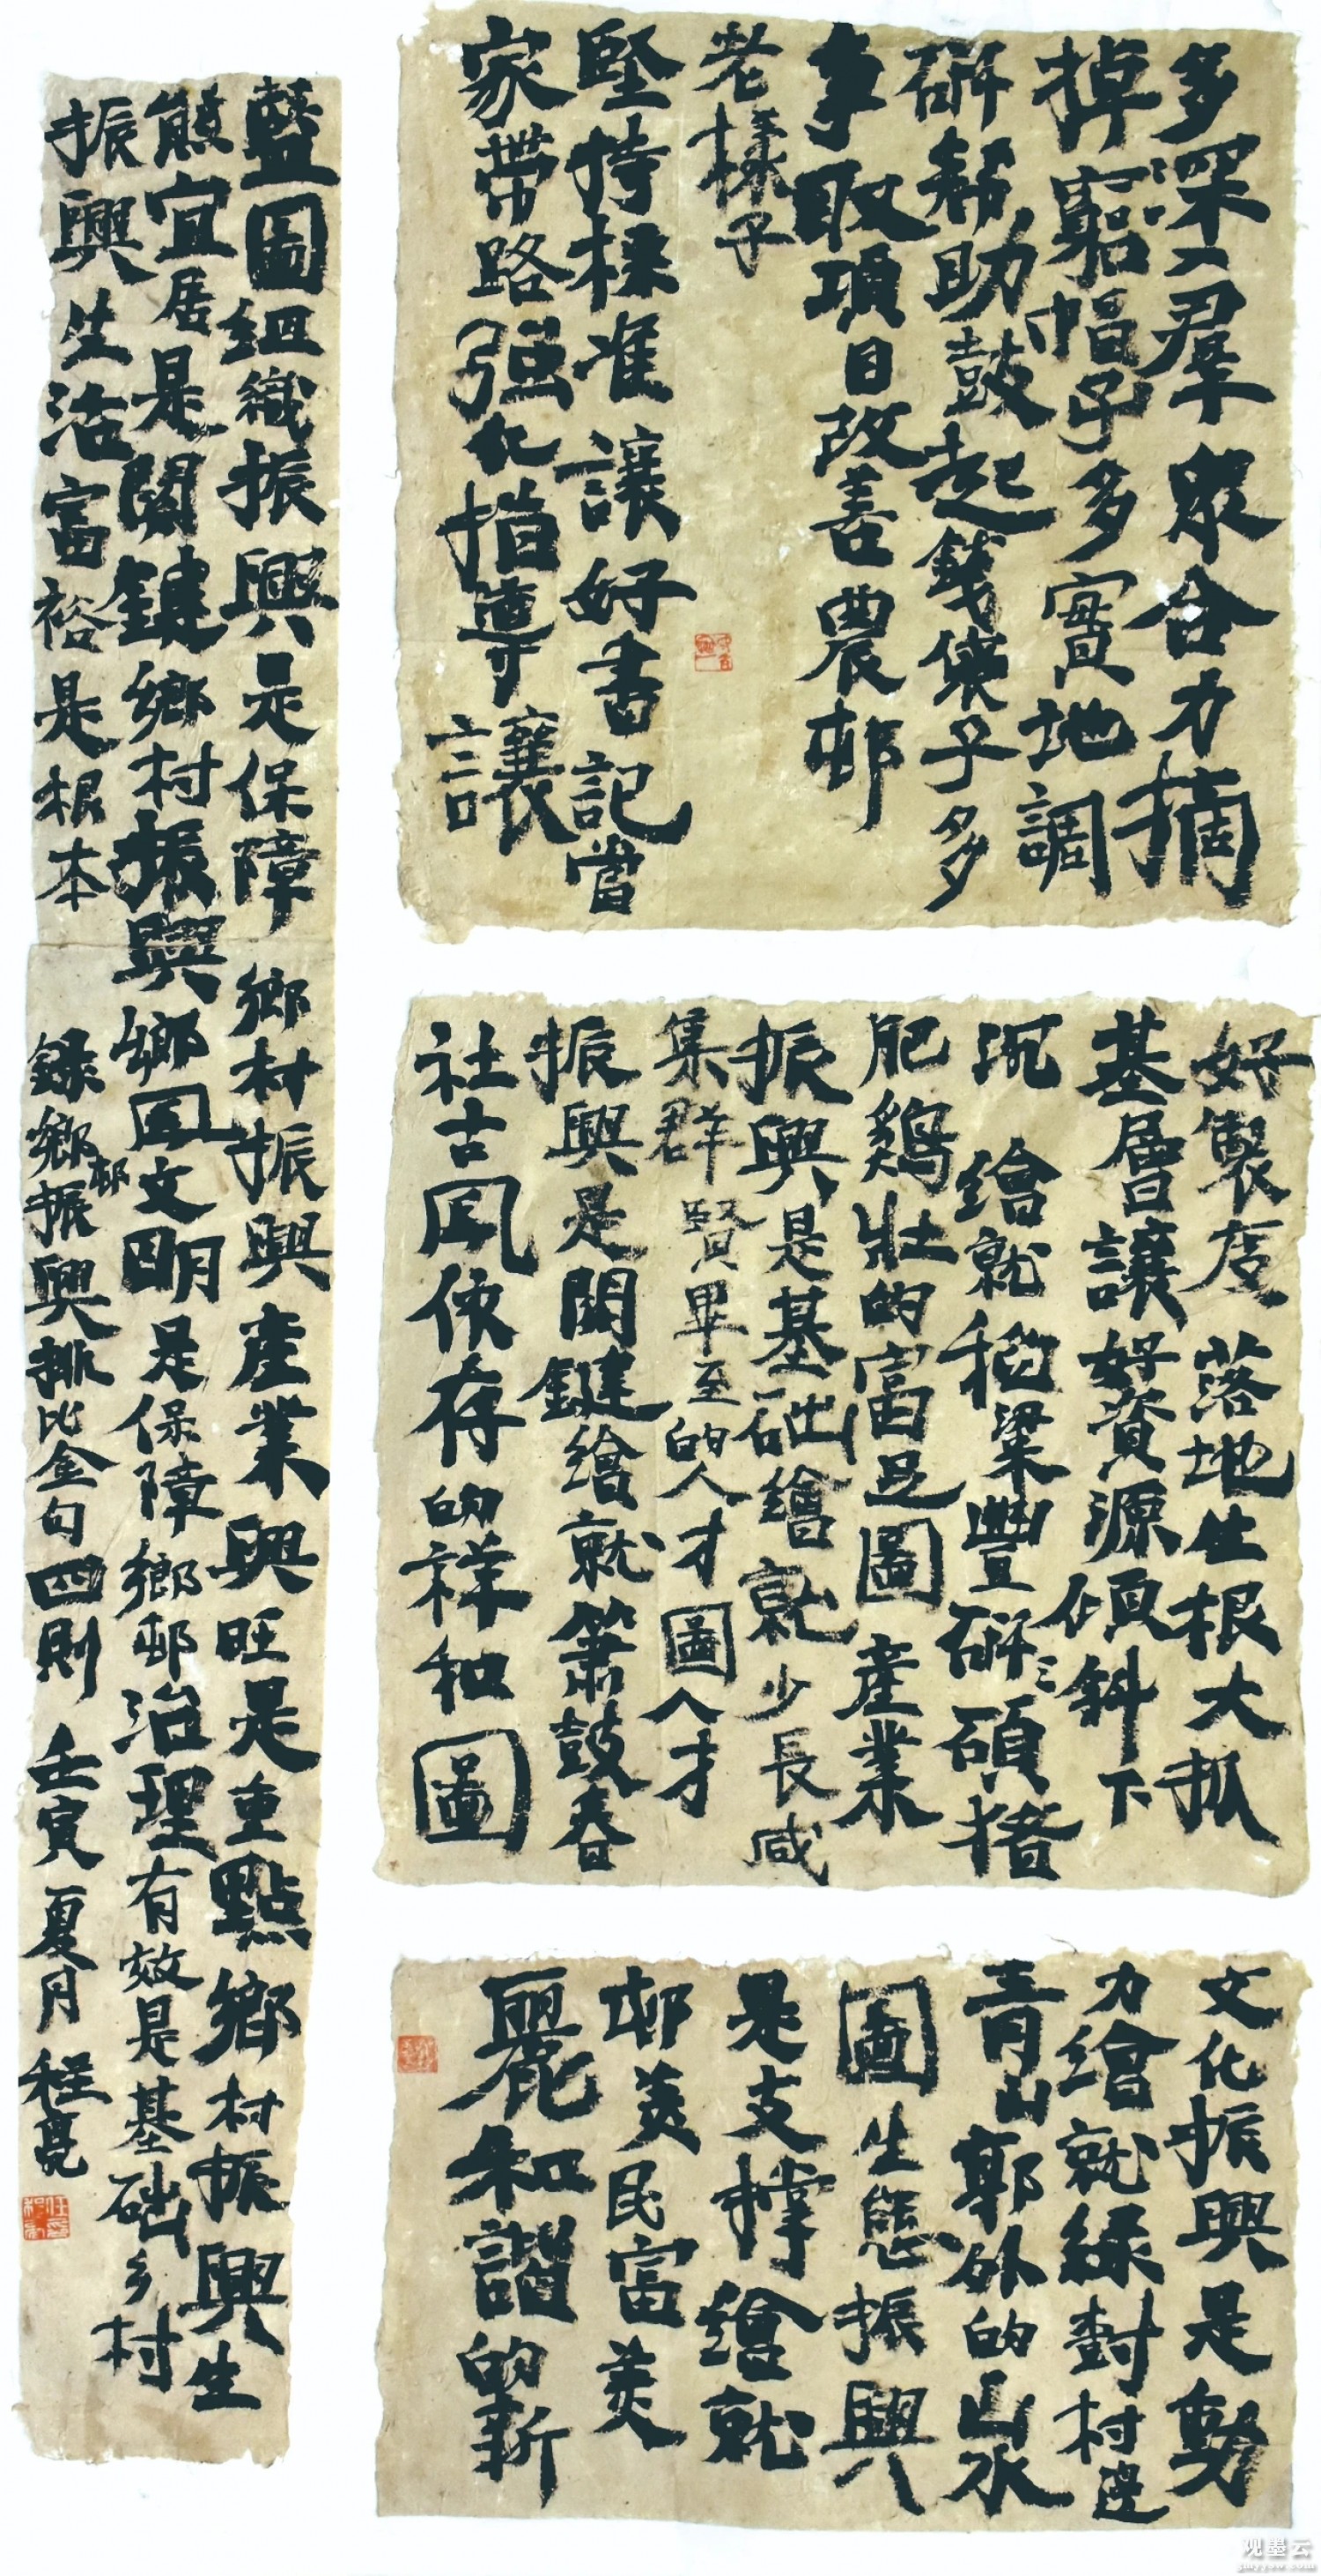 多深入羣衆合力摘
掉窮帽子多實地調
研幇助鼓起錢袋子多
争取項目改善農邨
老樣子
堅持標准讓好書記當
家帶路强化指導讓
好製度落地生根大抓
基層讓好資源傾斜下
沉繪就稻粱豐碩猪
肥鷄壯的富足圖産業
振興是基础繪就少長咸
集群賢畢至的人才圖人才
振興是関鍵繪就簫鼓春
社古风依存的祥和圖
文化振興是動
力繪就緑樹村邊
青山郭外的山水
圖生態振興
是支撑繪就
邨美民富美
麗和諧的新
藍圖組織振興是保障鄉村振興産業興旺是重點鄉村振興生
態宜居是関鍵鄉村振興鄉风文明是保障鄉邨治理有效是基础乡村
振興生活富裕是根本
録鄉邨振興排比金句四則壬寅夏月程亮
观墨云